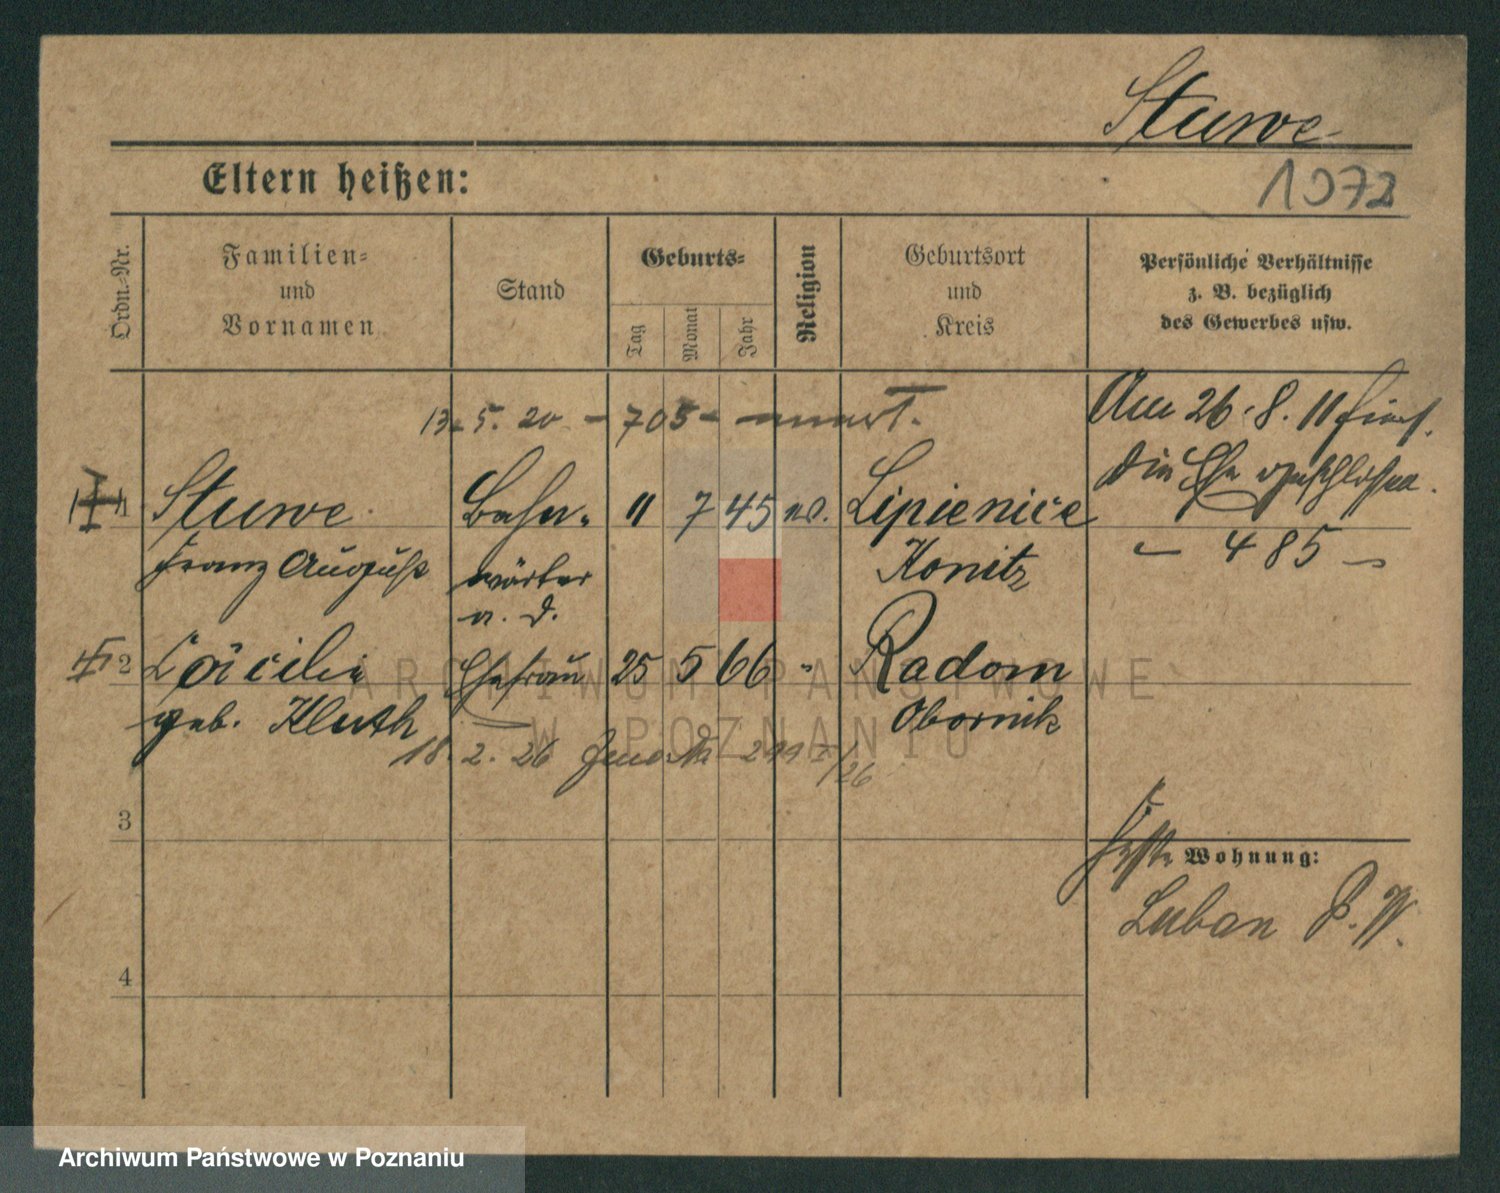 Stuwe
Eltern heißen:
1072
Ordn.-Nr.
Familien=
und
Vornamen
Stand
Geburts=
Tag
Monat
Jahr
Religion
Geburtsort
und
Kreis
Persönliche Verhältnisse
z. B. bezüglich
des Gewerbes usw.
13. 5. 20 – 705 –
Am 26. 8. 11 hier.
die Ehe geschlossen.
– 485 –
1 Stuwe Bahn- 11 7 45 ev. Lipienice
Franz August wärter Konitz
a. D.
2 Cäcilie Ehefrau 25 5 66 " Radom
geb. Kluth Obornik
18. 2. 26
3
Erste Wohnung:
Luban P. W.
4
ARCHIWUM PAŃSTWOWE
W POZNANIU
Archiwum Państwowe w Poznaniu